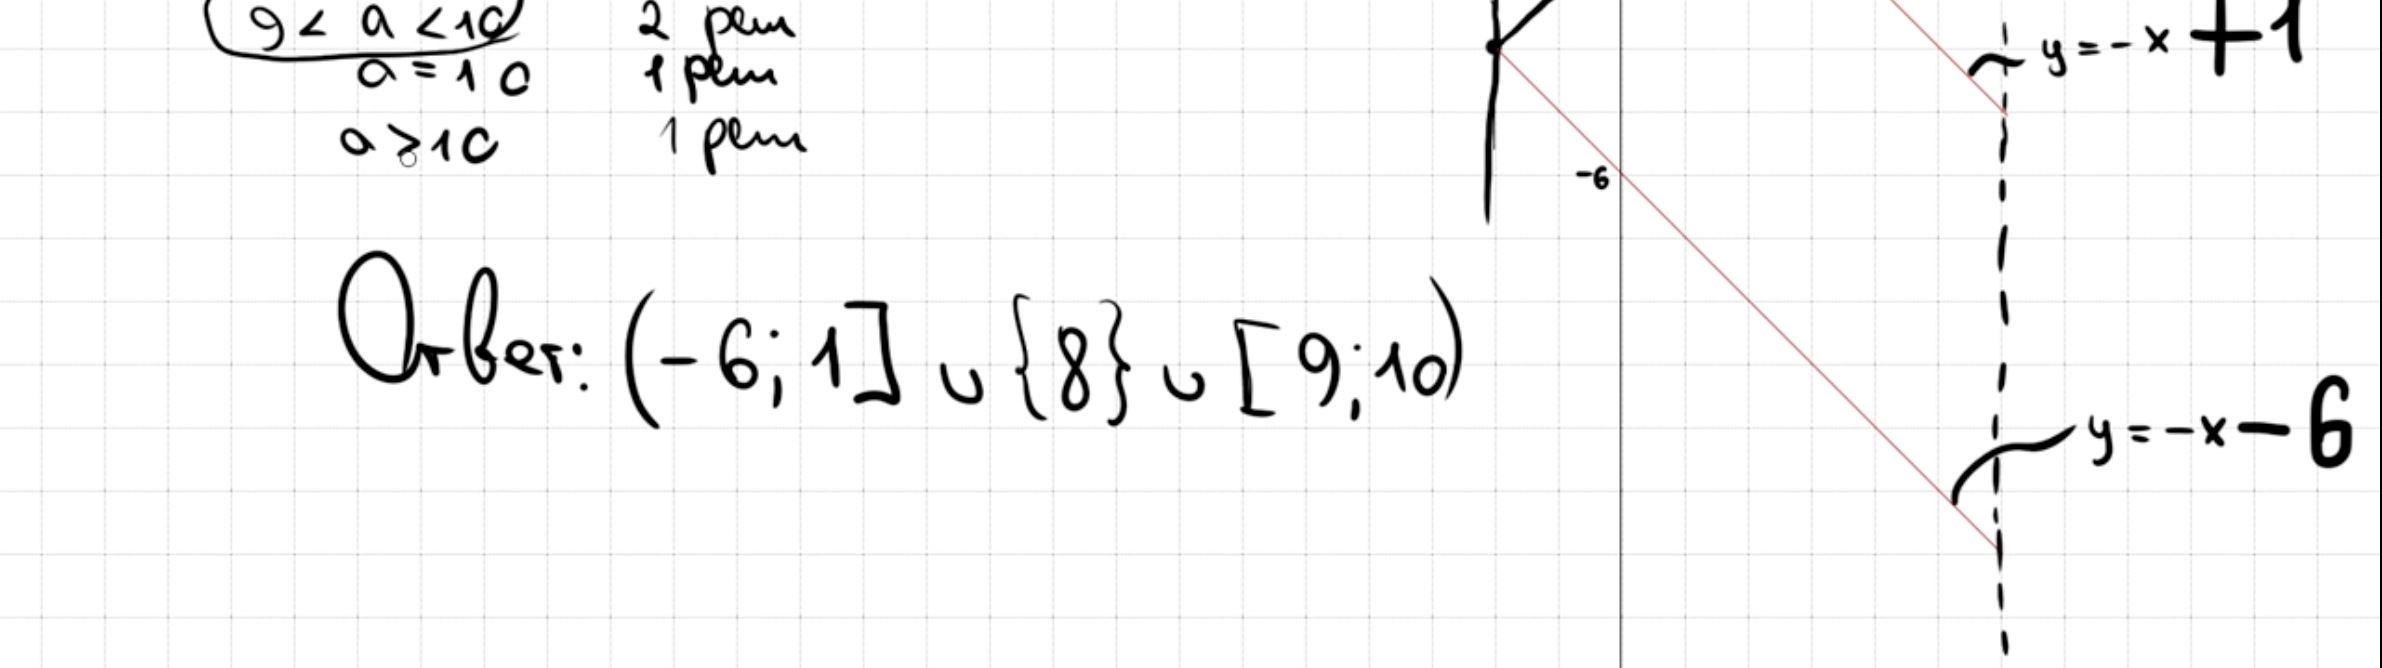 9 < a < 10 2 реш
a = 10 1 реш
a ⩾ 10 1 реш
Ответ: (-6; 1] ∪ {8} ∪ [9; 10)
y = -x + 1
-6
y = -x - 6